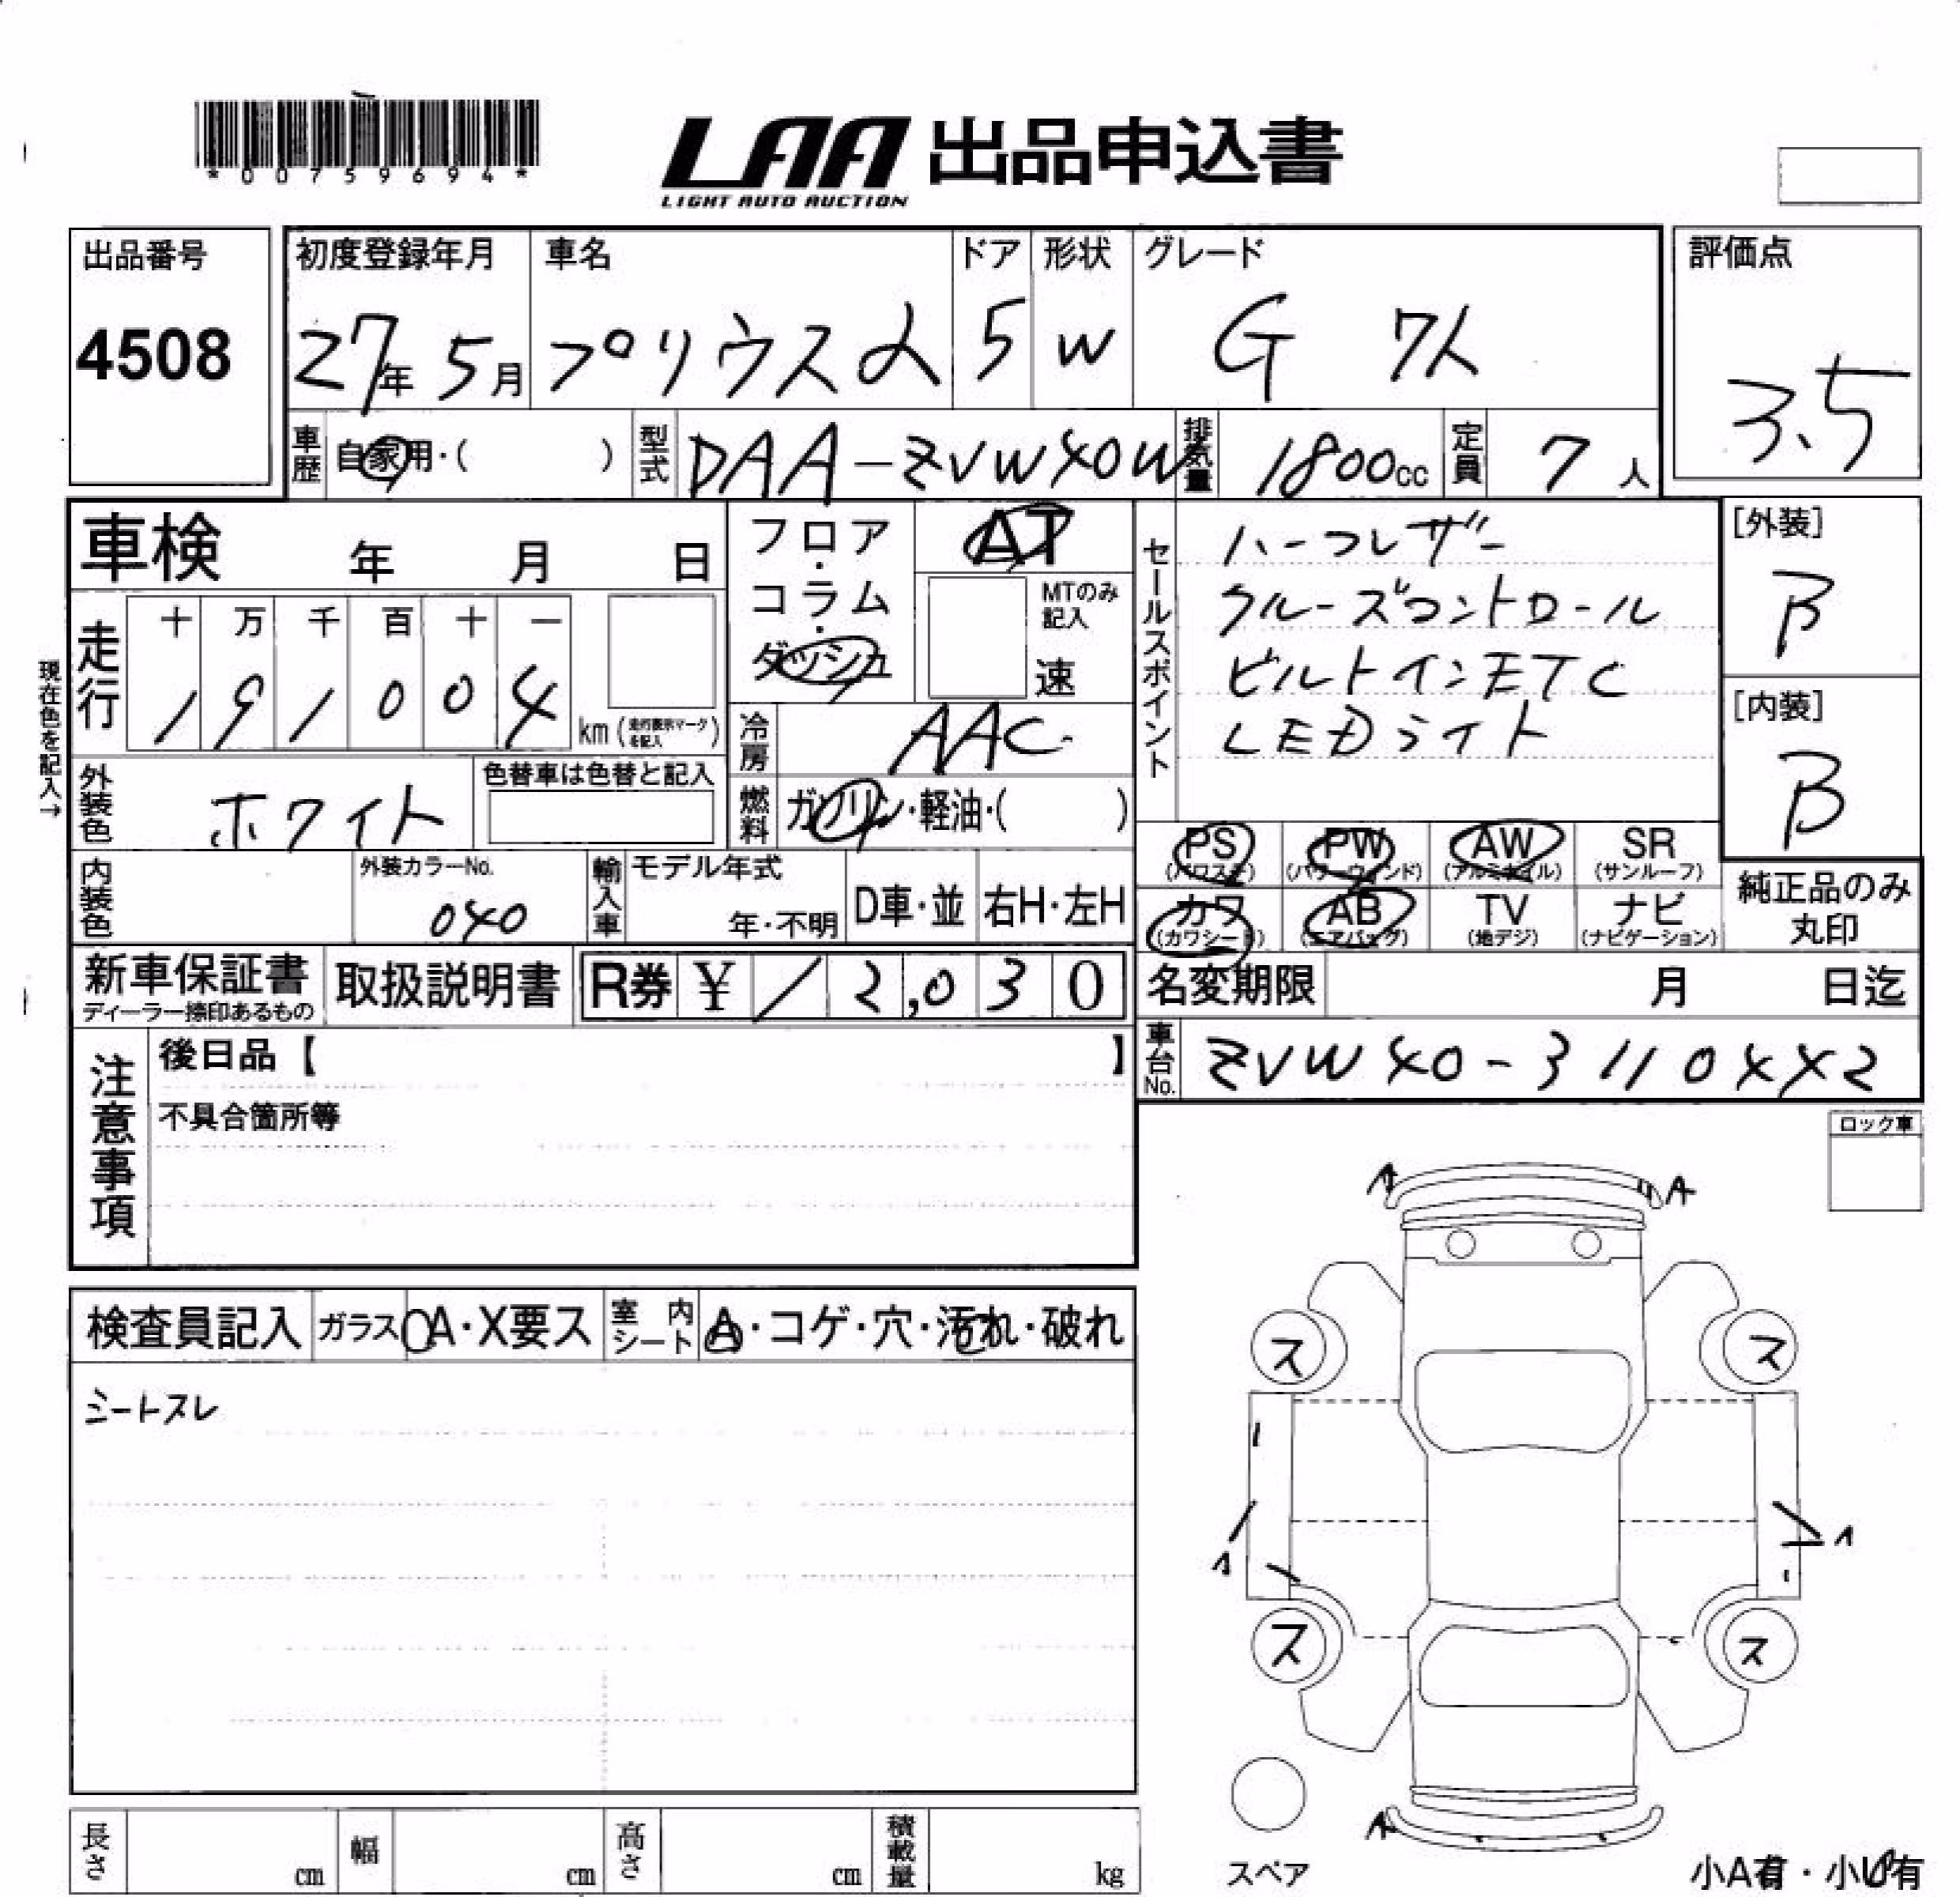 *00759694*
LAA 出品申込書
LIGHT AUTO AUCTION
出品番号
4508
初度登録年月
27年 5月
車名
プリウスα
ドア
5
形状
W
グレード
G 7人
評価点
3.5
車歴 自家用・( )
型式 DAA-ZVW40W
排気量 1800cc
定員 7人
車検 年 月 日
走行
十 万 千 百 十 一
1 9 1 0 0 4
km(走行表示マークを記入)
現在色を記入→
フロア・コラム・ダッシュ
AT
MTのみ記入
速
冷房 AAC
燃料 ガソリン・軽油・( )
外装色 ホワイト
色替車は色替と記入
内装色
外装カラーNo.
040
輸入車
モデル年式
年・不明
D車・並
右H・左H
新車保証書
ディーラー捺印あるもの
取扱説明書
R券 ¥12,030
セールスポイント
ハーフレザー
クルーズコントロール
ビルトインETC
LEDライト
[外装]
B
[内装]
B
PS (パワステ)
PW (パワーウィンド)
AW (アルミホイル)
SR (サンルーフ)
カワ (カワシート)
AB (エアバッグ)
TV (地デジ)
ナビ (ナビゲーション)
純正品のみ丸印
名変期限 月 日迄
車台No. ZVW40-3110442
注意事項
後日品【 】
不具合箇所等
ロック車
検査員記入
ガラス A・X要ス
室内シート A・コゲ・穴・汚れ・破れ
シートスレ
A A
ス ス
A A
ス ス
A
スペア
小A有・小U有
長さ cm
幅 cm
高さ cm
積載量 kg